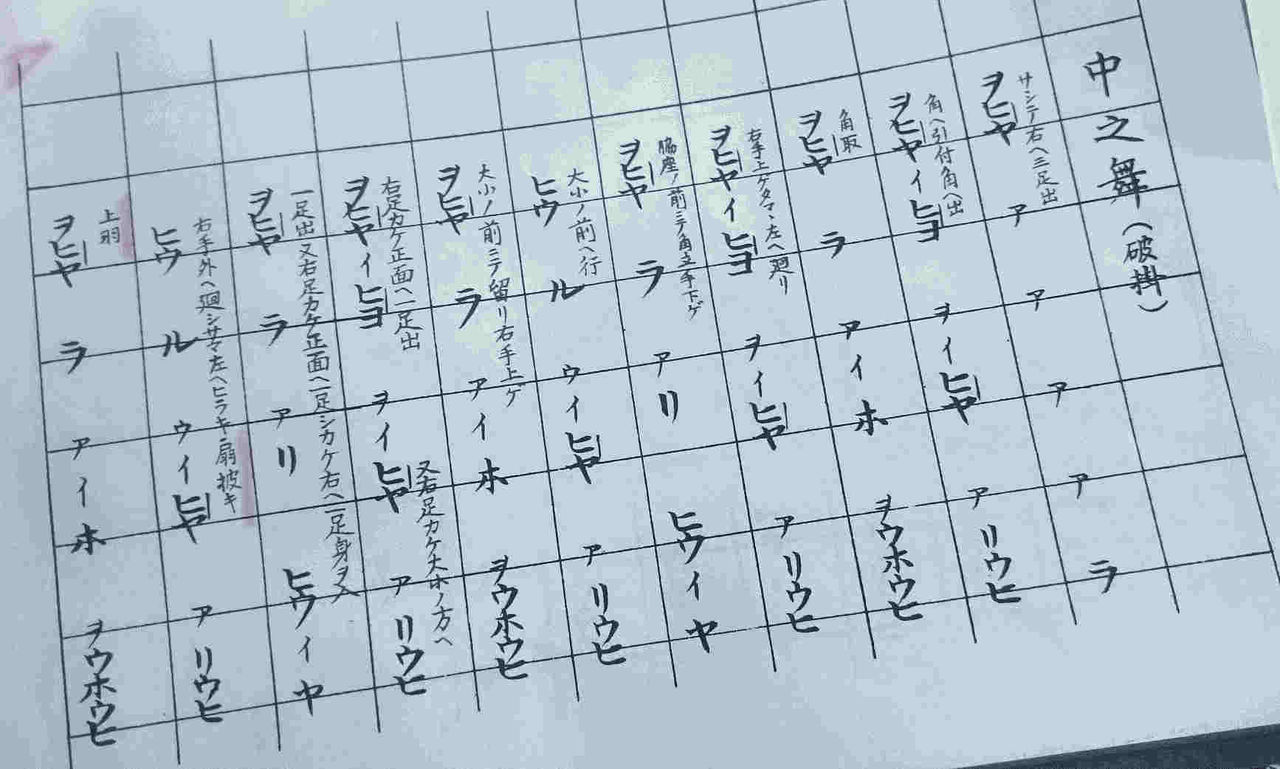 中之舞（破掛）
サシテ右ヘ三足出
ヲヒヤ ア ア ア ア ラ
角ヘ引付角ヘ出
ヲヒヤイヒヨ ヲイヒヤ アリウヒ
角取
ヲヒヤ ラ アイホ ヲウホウヒ
右手上ゲタマヽ左ヘ廻リ
ヲヒヤイヒヨ ヲイヒヤ アリウヒ
脇座ノ前ニテ角立手下ゲ
ヲヒヤ ラ アリ ヒウイヤ
大小ノ前ヘ行
ヒウ ル ウイヒヤ アリウヒ
大小ノ前ニテ留リ右手上ゲ
ヲヒヤ ラ アイホ ヲウホウヒ
右足カケ正面ヘ一足出 又右足カケ大小ノ方ヘ
ヲヒヤイヒヨ ヲイヒヤ アリウヒ
一足出又右足カケ正面ヘ一足シカケ右ヘ一足身ヲ入
ヲヒヤ ラ アリ ヒウイヤ
右手外ヘ廻シサマ左ヘヒラキ扇披キ
ヒウ ル ウイヒヤ アリウヒ
上羽
ヲヒヤ ラ アイホ ヲウホウヒ